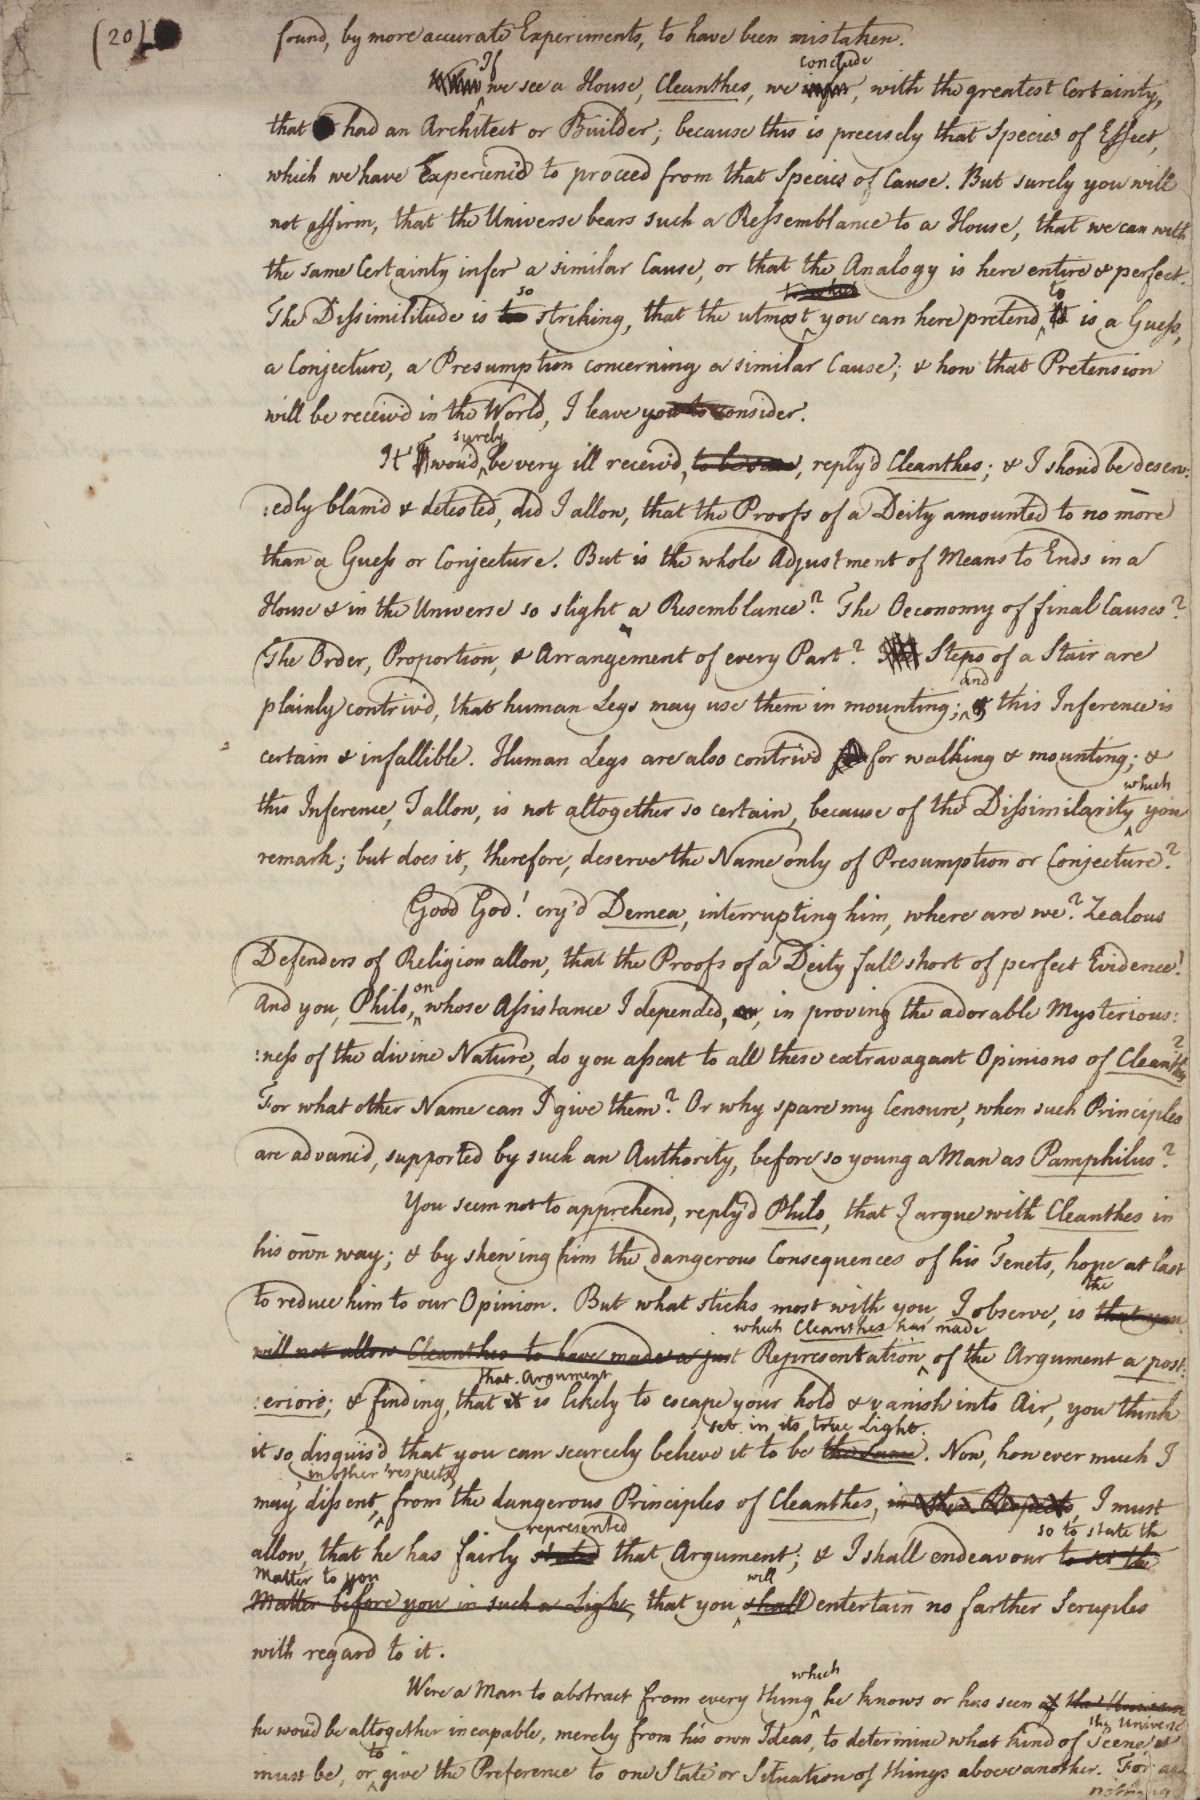 (20)
found, by more accurate Experiments, to have been mistaken.
If conclude
we see a House, Cleanthes, we infer, with the greatest Certainty,
that had an Architect or Builder; because this is precisely that Species of Effect,
which we have Experienc'd to proceed from that Species of Cause. But surely you will
not affirm, that the Universe bears such a Ressemblance to a House, that we can with
the same Certainty infer a similar Cause, or that the Analogy is here entire & perfect.
so to
The Dissimilitude is striking, that the utmost you can here pretend is a Guess,
a Conjecture, a Presumption concerning a similar Cause; & how that Pretension
will be receiv'd in the World, I leave you to consider.
surely
It wou'd be very ill receiv'd, to be sure, reply'd Cleanthes; & I shou'd be deserv:
:edly blam'd & detested, did I allow, that the Proofs of a Deity amounted to no more
than a Guess or Conjecture. But is the whole Adjustment of Means to Ends in a
House & in the Universe so slight a Resemblance? The Oeconomy of final Causes?
The Order, Proportion, & Arrangement of every Part? Steps of a Stair are
and
plainly contriv'd, that human Legs may use them in mounting; & this Inference is
certain & infallible. Human Legs are also contriv'd for walking & mounting; &
which
this Inference, I allow, is not altogether so certain, because of the Dissimilarity you
remark; but does it, therefore, deserve the Name only of Presumption or Conjecture?
Good God! cry'd Demea, interrupting him, where are we? Zealous
Defenders of Religion allow, that the Proofs of a Deity fall short of perfect Evidence!
on
And you, Philo, whose Assistance I depended, in proving the adorable Mysterious:
:ness of the divine Nature, do you assent to all these extravagant Opinions of Cleanthes?
For what other Name can I give them? Or why spare my Censure, when such Principles
are advanc'd, supported by such an Authority, before so young a Man as Pamphilus?
You seem not to apprehend, reply'd Philo, that I argue with Cleanthes in
his own way; & by shewing him the dangerous Consequences of his Tenets, hope at last
the
to reduce him to our Opinion. But what sticks most with you, I observe, is that you
which Cleanthes has made
will not allow Cleanthes to have made a just Representation of the Argument a post:
that Argument
:eriori; & finding, that it is likely to escape your hold & vanish into Air, you think
set in its true Light.
it so disguis'd that you can scarcely believe it to be the same. Now, however much I
in other respects,
may dissent, from the dangerous Principles of Cleanthes, in other Respects, I must
represented so to state the
allow, that he has fairly stated that Argument; & I shall endeavour to set the
Matter to you will
Matter before you in such a Light, that you shall entertain no farther Scruples
with regard to it.
which
Were a Man to abstract from every thing he knows or has seen of the Universe
the Universe
he wou'd be altogether incapable, merely from his own Ideas, to determine what kind of Scene
to
must be, or give the Preference to one State or Situation of things above another. For as
nothing